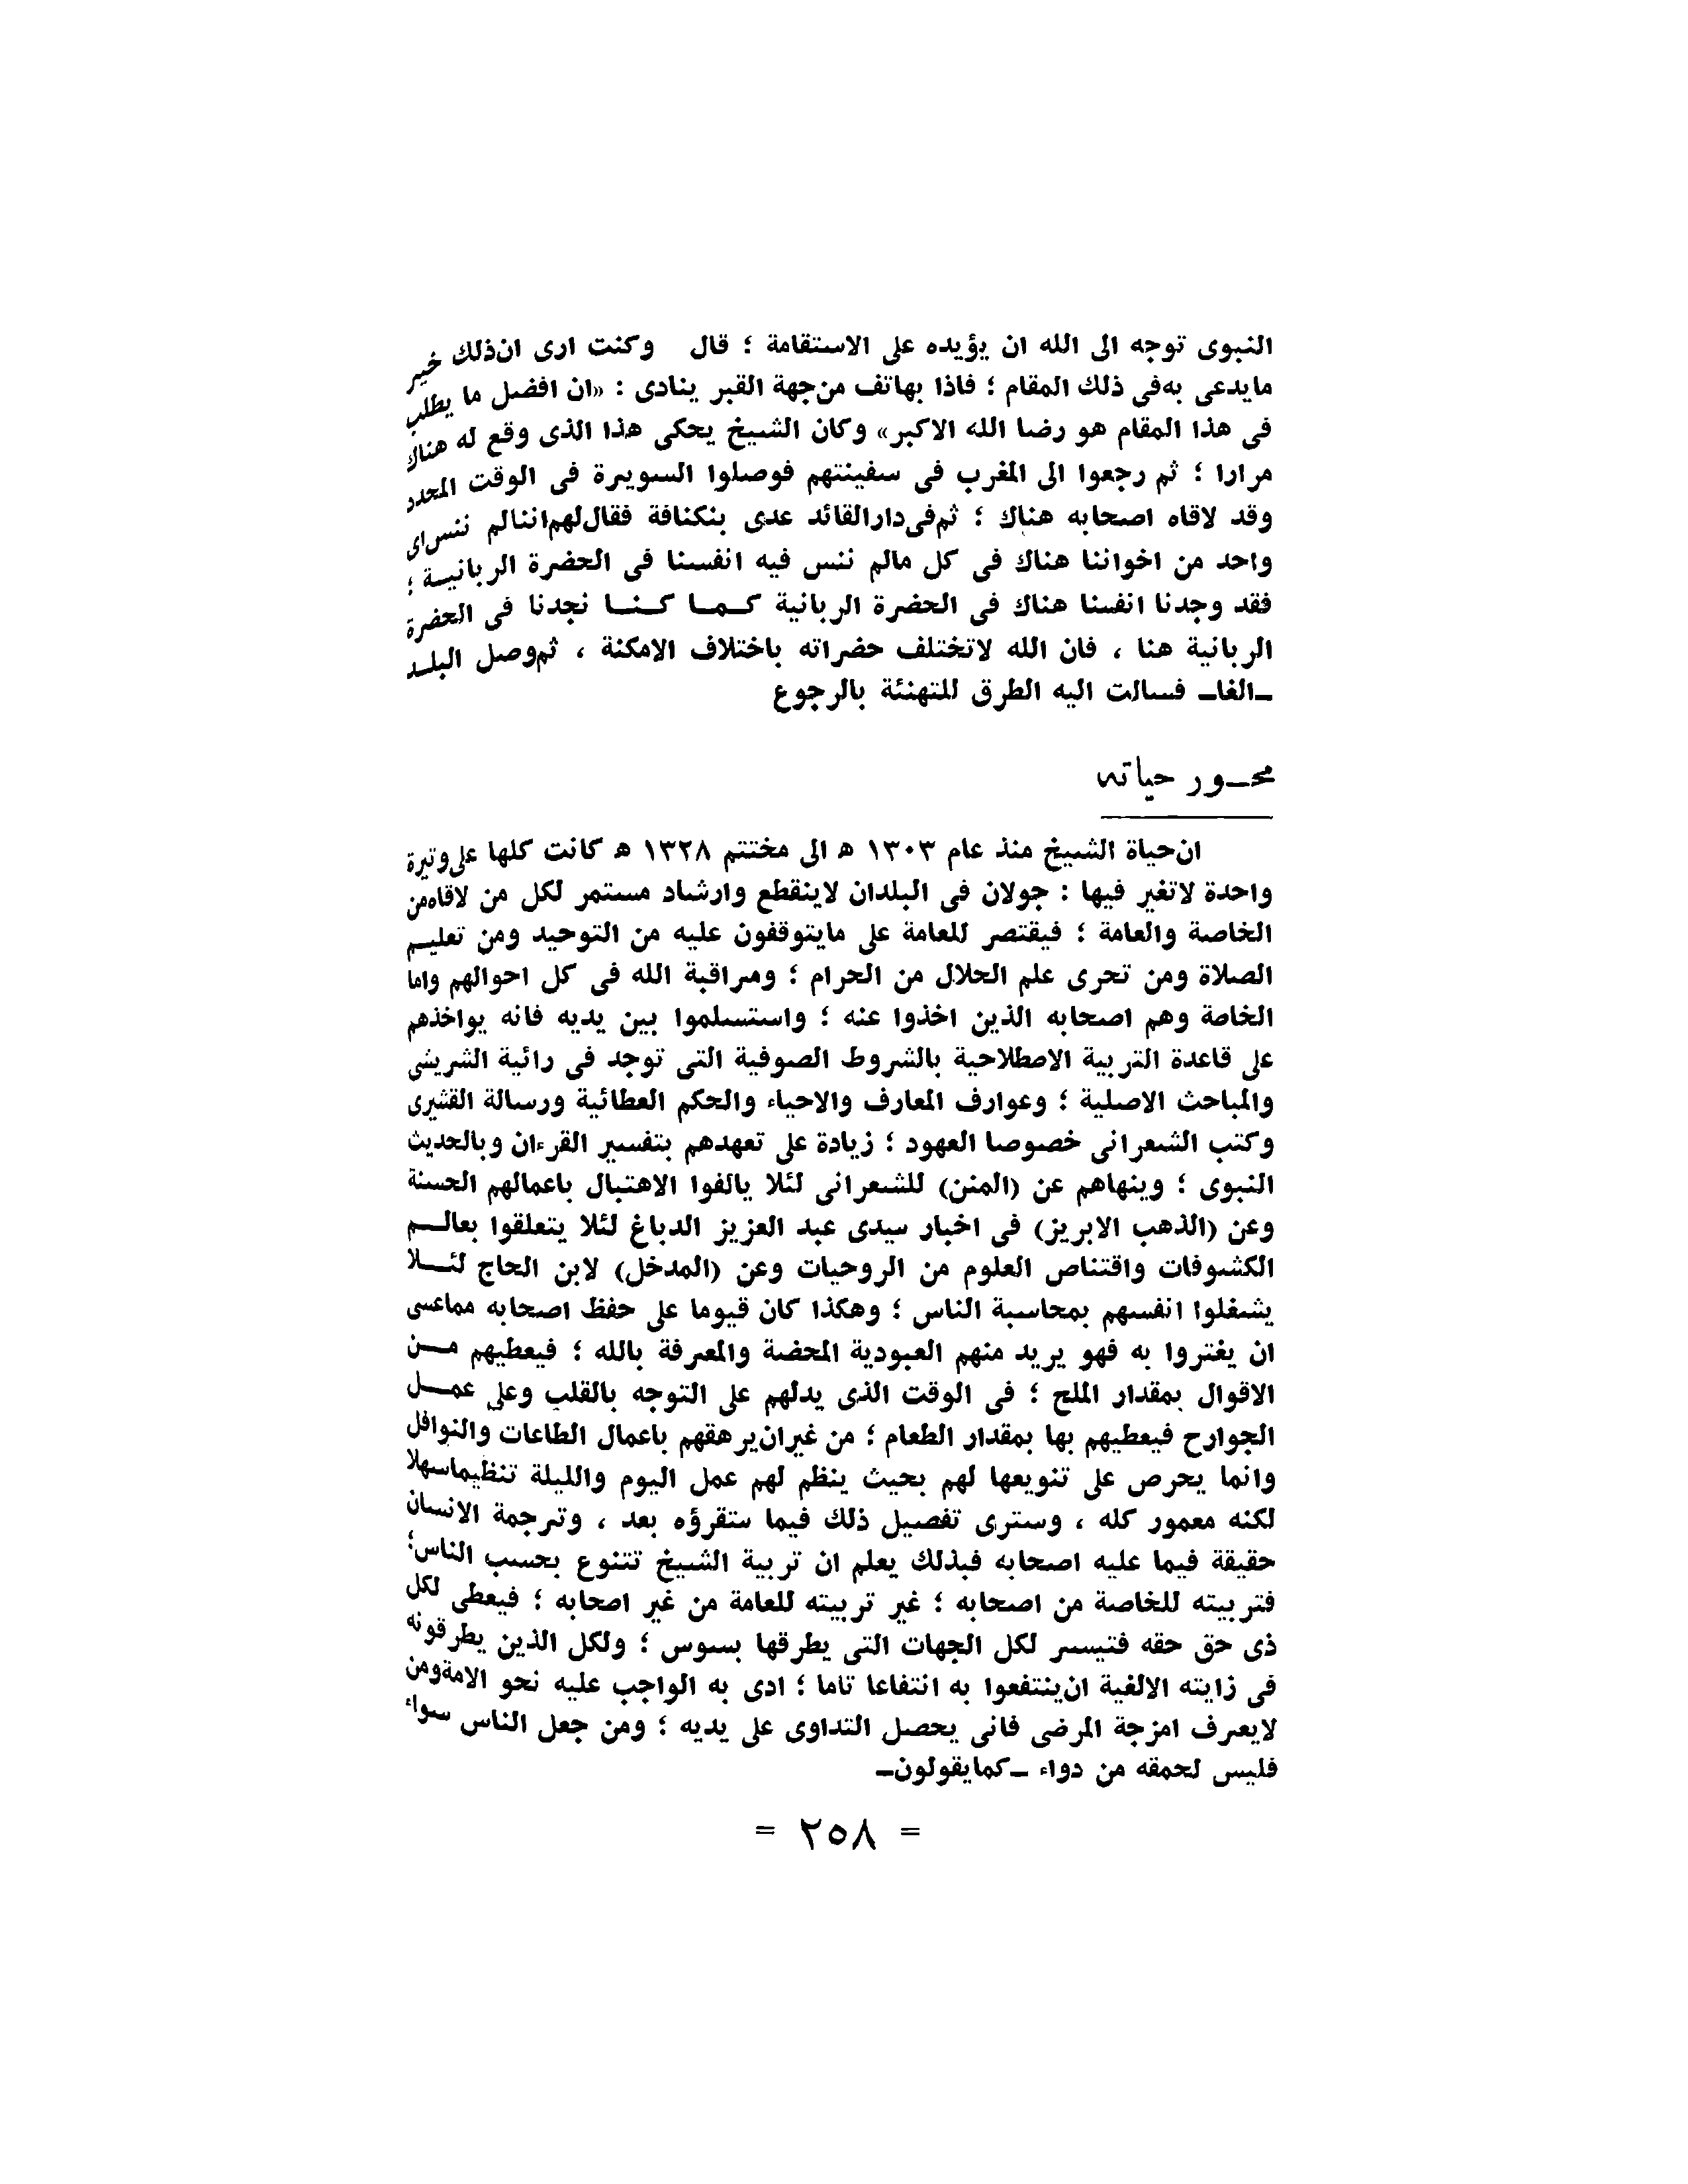 النبوى توجه الى الله ان يؤيده على الاستقامة ؛ قال وكنت ارى ان ذلك خير
مايدعى به فى ذلك المقام ؛ فاذا بهاتف من جهة القبر ينادى : «ان افضل ما يطلب
فى هذا المقام هو رضا الله الاكبر» وكان الشيخ يحكى هذا الذى وقع له هناك
مرارا ؛ ثم رجعوا الى المغرب فى سفينتهم فوصلوا السويرة فى الوقت المحدد
وقد لاقاه اصحابه هناك ؛ ثم فى دار القائد عدى بنكنافة فقال لهم اننا لم ننس اى
واحد من اخواننا هناك فى كل مالم ننس فيه انفسنا فى الحضرة الربانيــة ؛
فقد وجدنا انفسنا هناك فى الحضرة الربانية كــما كــنــا نجدنا فى الحضرة
الربانية هنا ، فان الله لاتختلف حضراته باختلاف الامكنة ، ثم وصل البلــد
ـالغاـ فسالت اليه الطرق للتهنئة بالرجوع
محــور حياته
ان حياة الشيخ منذ عام ١٣٠٣ ه الى مختتم ١٣٢٨ ه كانت كلها على وتيرة
واحدة لاتغير فيها : جولان فى البلدان لاينقطع وارشاد مستمر لكل من لاقاه من
الخاصة والعامة ؛ فيقتصر للعامة على مايتوقفون عليه من التوحيد ومن تعليــم
الصلاة ومن تحرى علم الحلال من الحرام ؛ ومراقبة الله فى كل احوالهم واما
الخاصة وهم اصحابه الذين اخذوا عنه ؛ واستسلموا بين يديه فانه يواخذهم
على قاعدة التربية الاصطلاحية بالشروط الصوفية التى توجد فى رائية الشريشى
والمباحث الاصلية ؛ وعوارف المعارف والاحياء والحكم العطائية ورسالة القشيرى
وكتب الشعرانى خصوصا العهود ؛ زيادة على تعهدهم بتفسير القرءان وبالحديث
النبوى ؛ وينهاهم عن (المنن) للشعرانى لئلا يالفوا الاهتبال باعمالهم الحسنة
وعن (الذهب الابريز) فى اخبار سيدى عبد العزيز الدباغ لئلا يتعلقوا بعالــم
الكشوفات واقتناص العلوم من الروحيات وعن (المدخل) لابن الحاج لئــلا
يشغلوا انفسهم بمحاسبة الناس ؛ وهكذا كان قيوما على حفظ اصحابه مماعسى
ان يغتروا به فهو يريد منهم العبودية المحضة والمعرفة بالله ؛ فيعطيهم مــن
الاقوال بمقدار الملح ؛ فى الوقت الذى يدلهم على التوجه بالقلب وعلى عمــل
الجوارح فيعطيهم بها بمقدار الطعام ؛ من غير ان يرهقهم باعمال الطاعات والنوافل
وانما يحرص على تنويعها لهم بحيث ينظم لهم عمل اليوم والليلة تنظيما سهلا
لكنه معمور كله ، وسترى تفصيل ذلك فيما ستقرؤه بعد ، وترجمة الانسان
حقيقة فيما عليه اصحابه فبذلك يعلم ان تربية الشيخ تتنوع بحسب الناس؛
فتربيته للخاصة من اصحابه ؛ غير تربيته للعامة من غير اصحابه ؛ فيعطى لكل
ذى حق حقه فتيسر لكل الجهات التى يطرقها بسوس ؛ ولكل الذين يطرقونه
فى زايته الالغية ان ينتفعوا به انتفاعا تاما ؛ ادى به الواجب عليه نحو الامة ومن
لايعرف امزجة المرضى فانى يحصل التداوى على يديه ؛ ومن جعل الناس سواء
فليس لحمقه من دواء ـكما يقولونـ
= ٢٥٨ =